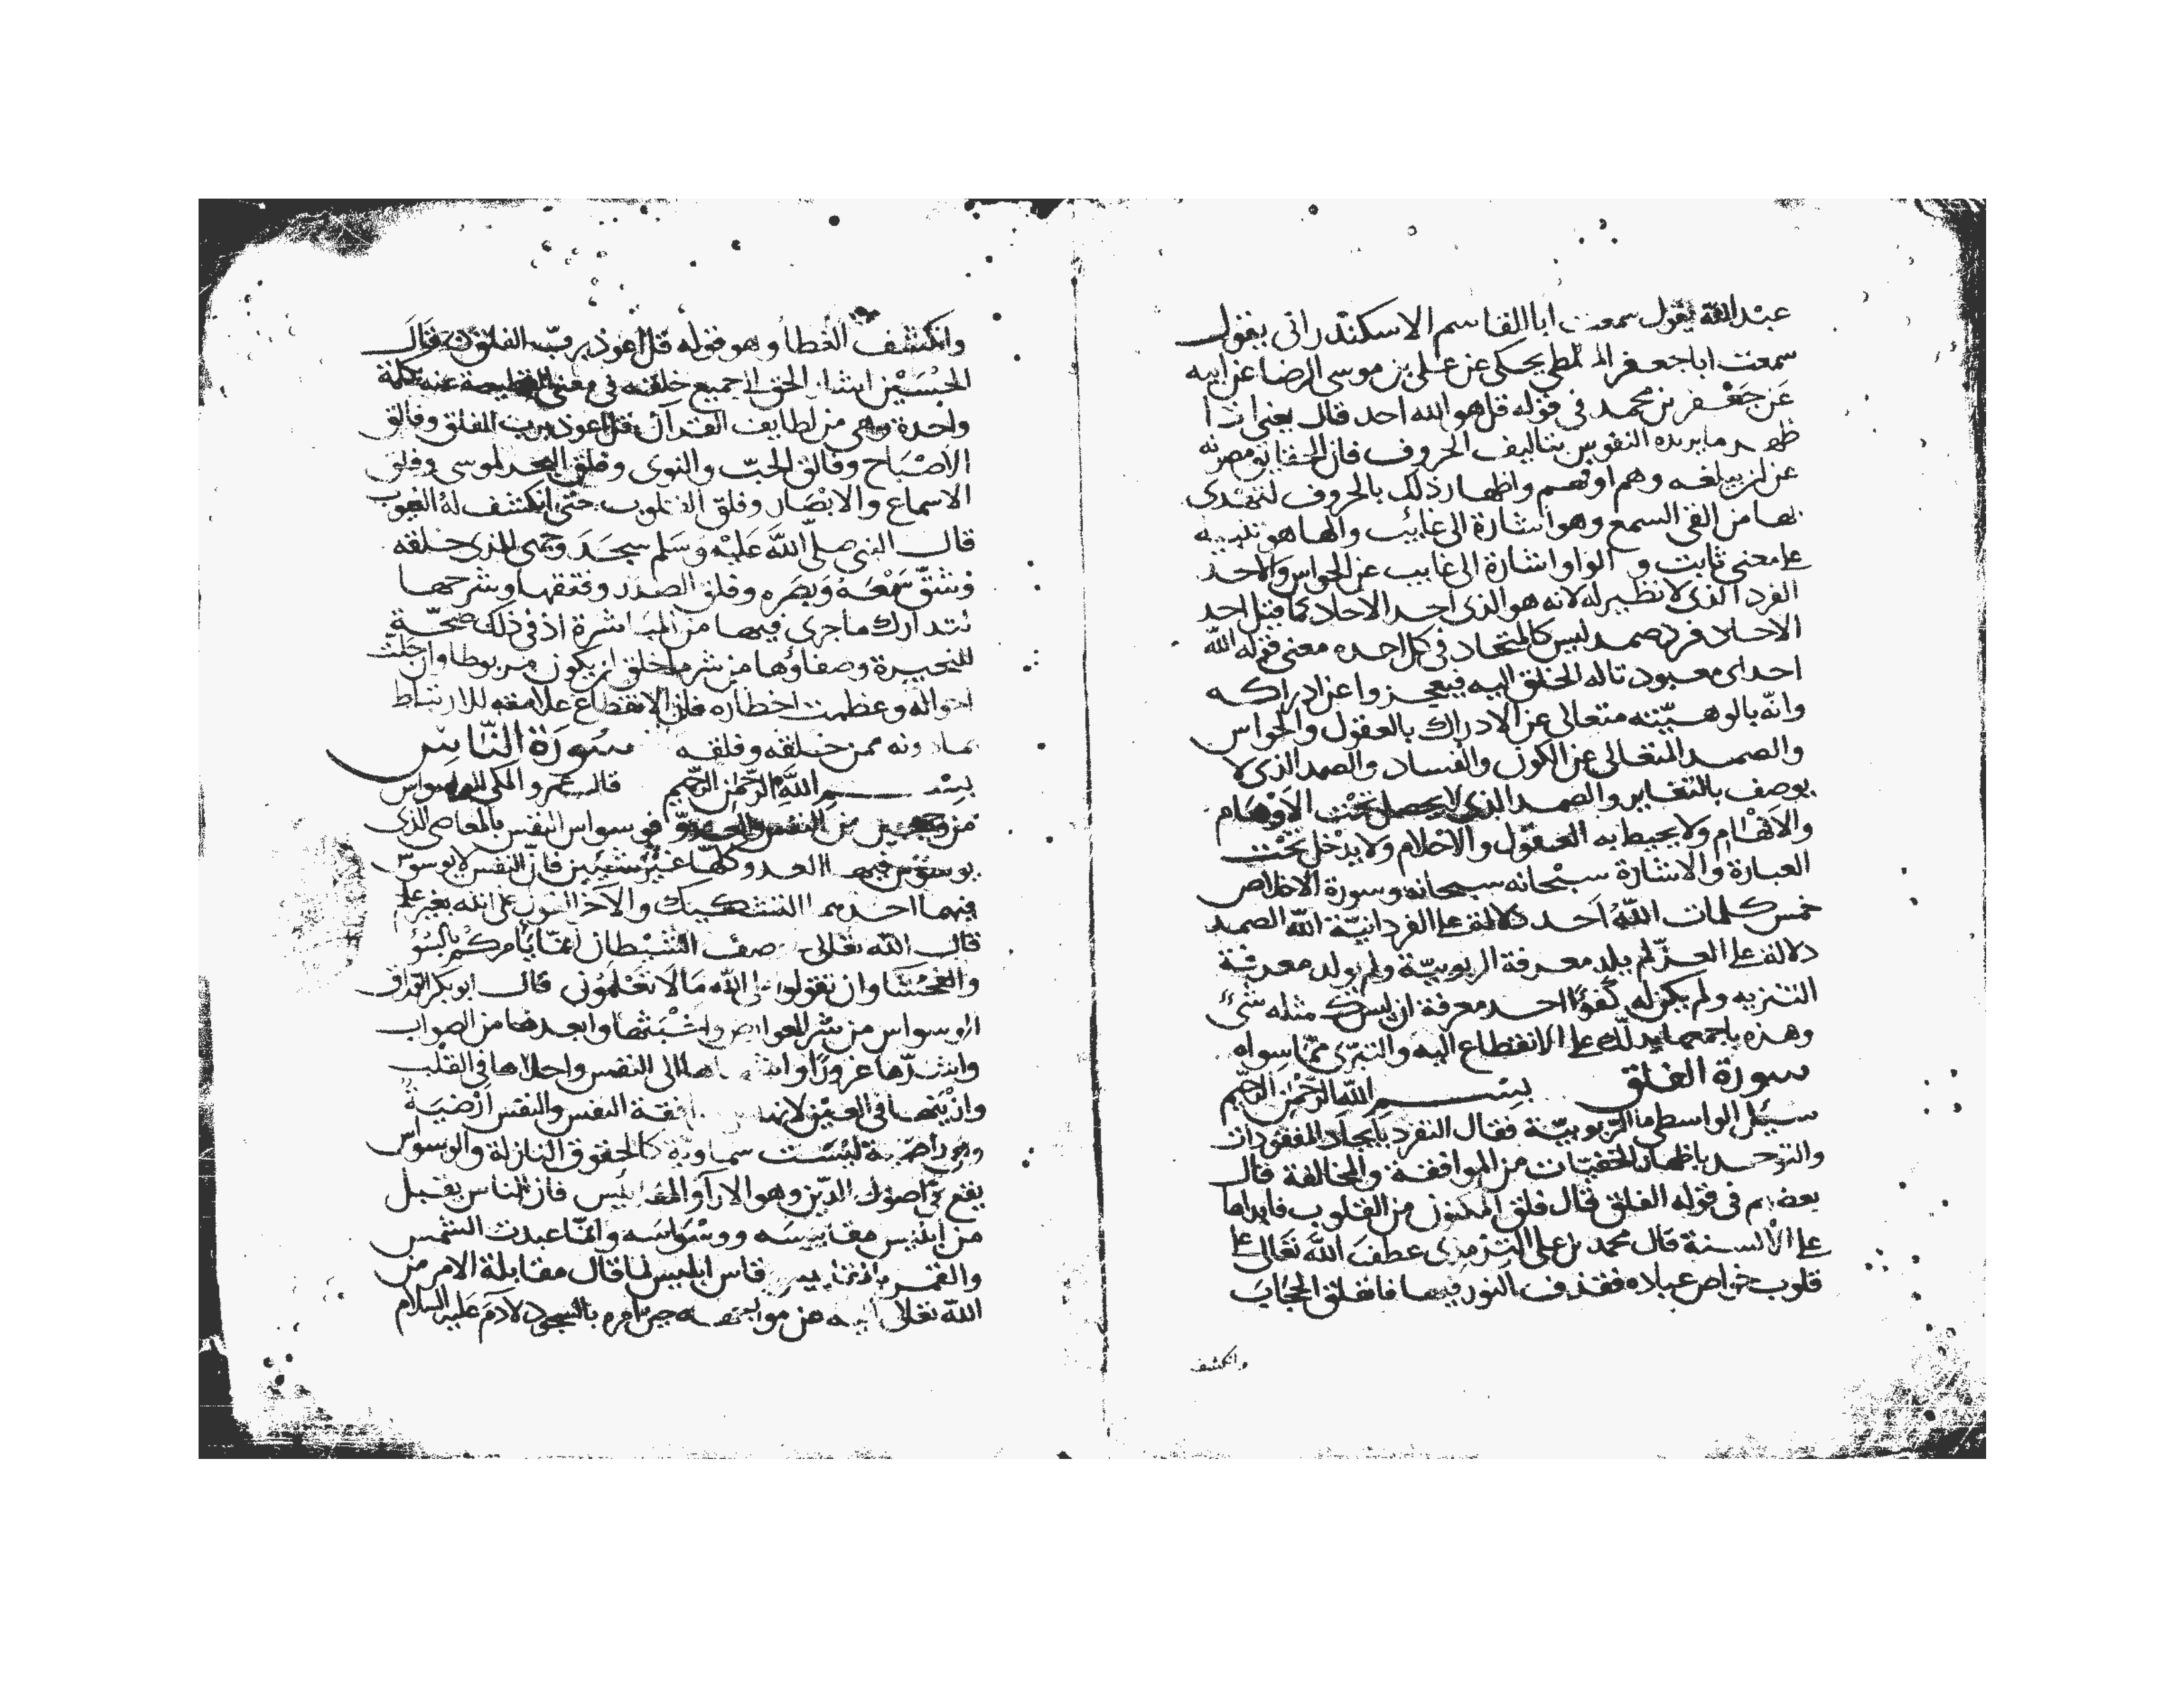 عبد الله يقول سمعت ابا القاسم الاسكندراني يقول
سمعت ابا جعفر الملطي يحكي عن علي بن موسى الرضا عن ابيه
عن جعفر بن محمد في قوله قل هو الله احد قال يعني
ما يريده النفوس بتاليف الحروف فان الحقايق مصونه
عن ان يبلغه وهم او فهم واظهار ذلك بالحروف ليهتدى
بها من القى السمع وهو اشارة الى غائب والها هو تنبيه
على معنى ثابت و الواو اشارة الى غايب عن الحواس والاحد
الفرد الذى لا نظير له لانه هو الذى احد الاحاد
الاحاد فرد صمد ليس كالاتحاد في كل احده معنى قوله الله
احد اى معبود تاله الخلق اليه فيعجزوا عن ادراكه
وانّه بالوهيّته متعالى عن الادراك بالعقول والحواس
والصمد المتعالى عن الكون والفساد والصمد الذى لا
يوصف بالتغاير والصمد الذى لا يحصل تحت الاوهام
والافهام ولا يحيط به العقول والاحلام ولا يدخل تحت
العبارة والاشارة سبحانه سبحانه وسورة الاخلاص
خمس كلمات اللهُ اَحد دلالته على الفردانيّة الله الصمد
دلالته على العزّ لم يلد معرفة الربوبيّة ولم يولد معرفة
التنزيه ولم يكن له كفؤًا احد معرفة ان ليس كمثله شىء
وهذه باجمعها يدلك على الانقطاع اليه والتبرّى ممّا سواه
سورة الفلق بسم الله الرّحمٰن الرّحيم
سئل الواسطى ما الربوبيّة فقال التفرد بايجاد المفقودات
والتوحد باظهار الخفيّات من الموافقة والمخالفة قال
بعضهم فى قوله الفلق قال فلق المكنون من القلوب فابداها
على الألسنة قال محمد بن على الترمذى عطف الله تعالى على
قلوب خواص عباده فقذف النور فيها فانفلق الحجاب
وانكشف
وانكشف الغطا وهو قوله قل اعوذ برب الفلق قال
الحُسَيْن اشار الحق الى جميع خلقه فى معنى القطيعة عنه بكلمة
واحدة وهى من لطايف القرآن قل اعوذ برب الفلق وفالق
الاصْبَاح وفالق الحبّ والنوى وفلق البحر لموسى وفلق
الاسماع والابْصَار وفلق القلوب حتى انكشف له الغيوب
قال النبى صلى الله عَليْه وَسَلم سجَدَ وجهى للذى خلقه
وشقّ سَمْعَهُ وَبصَره وفلق الصدر وفتقها وشرحها
تدارك ما جرى فيها من المباشرة اذ فى ذلك صحّة
للتحيرة وصفاؤها من شر ما خلق ان يكون مربوطا وان جلت
احواله وعظمت اخطاره فان الانقطاع علامة للارتباط
بمادونه ممن خلقه وفلقه سُورَة النّاسِ
بسم الله الرّحمٰن الرّحيم قال عمرو المكى الوسواس
من وجهين من النفس والعدو فوسواس النفس بالمعاصى الذى
يوسوس فيها العدو كلها غير شيئين فان النفس لا يوسوس
فيهما احدهما التشكيك والآخر القول على الله بغير علم
قال الله تعالى وصف الشيطان إنمّا يَأمركُم بالسُّوُ
والفحْشا وان تقولوا على الله مَا لَا تَعْلَمُوُن قال ابو بكر الوراق
الوسواس من شر العوارض واخبثها وابعدها من الصواب
واشدّها غرورًا الى النفس واحلاها فى القلب
وازْيَنها فى العيْن لانها موافقة النفس والنفس ارْضيَةٌ
ليْسَتْ سماويّة كالحقوق النازلة والوسواس
يقع فى اصول الدّين وهو الارآ والمقاييس فان الناس يقبل
من ابليس مقاييسَه ووسْوَاسَه وانمّا عبدت الشمس
والقمر بالمقاييس قاس ابليس لما قال مقابلة الامر من
الله تعالى حين امره بالسجود لآدمَ عَليْه السلام